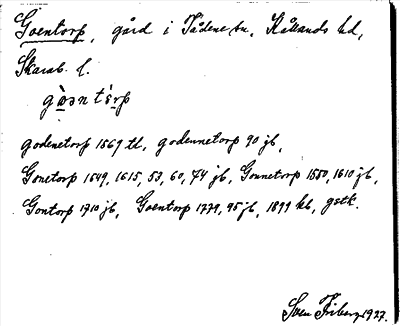 Goentorp, gård i Tådene sn, Kållands hd,
Skarab. l.
gòǝntórp
godenetorp 1569 tl, godennetorp 90 jb,
Gonetorp 1649, 1615, 53, 60, 74 jb, Gonnetorp 1550, 1610 jb,
Gontorp 1710 jb, Goentorp 1779, 95 jb, 1899 kb, gstk.
Sven Friberg 1927.